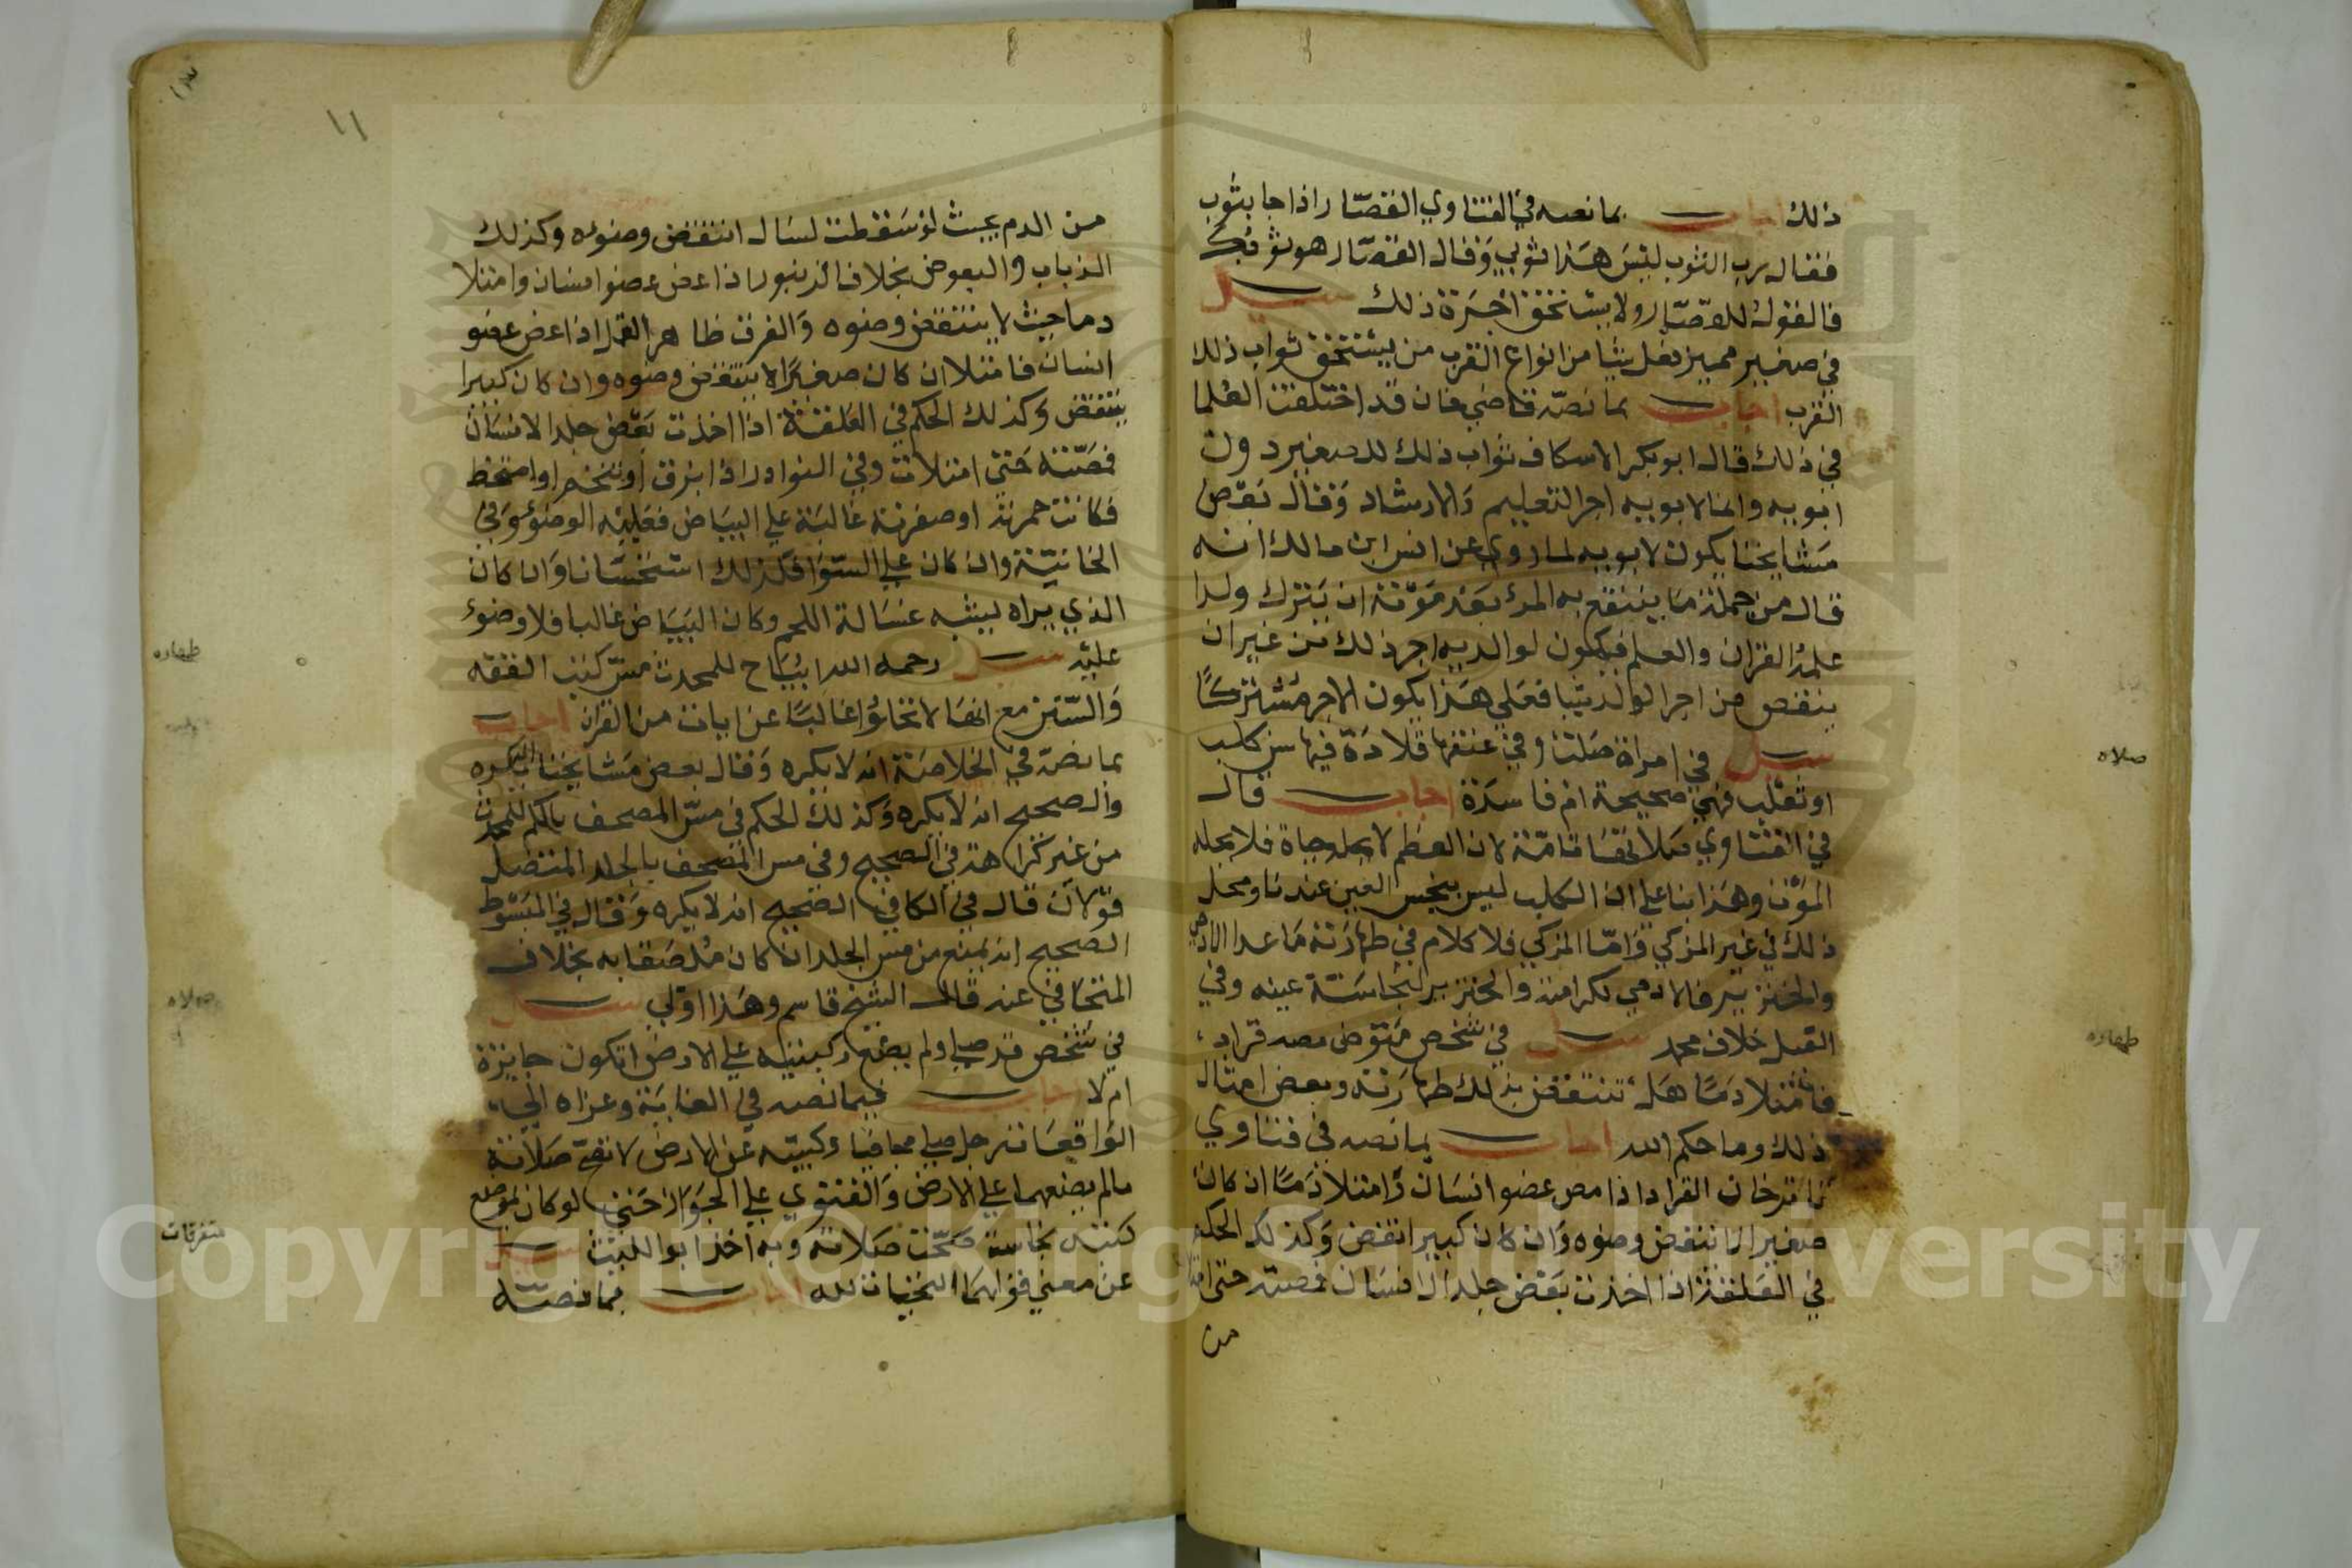 ذلك اجاب بما نصه في الفتاوي القصار اذا جا بثوب
فقال رب الثوب ليس هذا ثوبي وقال القصار هو ثوبك
فالقول للقصار ولا يستحق اجرة ذلك سيل
في صغير مميز فعل شيا من انواع القرب من يستحق ثواب ذلك
القرب اجاب بما نصه قاضي خان قد اختلفت العلما
في ذلك قال ابو بكر الاسكاف ثواب ذلك للصغير دون
ابويه وانما لابويه اجر التعليم والارشاد وقال بعض
مشايخنا يكون لابويه لما روي عن انس ابن مالك انه
قال من جملة ما ينتفع به المرء بعد موته ان يترك ولدا
علمه القران والعلم فيكون لوالديه اجر ذلك من غير ان
ينقص من اجر الولد شيا فعلي هذا يكون الاجر مشتركا
سيل في امراة صلت وفي عنقها قلادة فيها سن كلب
او ثعلب فهي صحيحة ام فاسدة اجاب قال
في الفتاوي صلاتها تامة لان العظم لا يحله حياة فلا يحله
الموت وهذا بنا علي ان الكلب ليس بنجس العين عندنا ومحل
ذلك في غير المزكي واما المزكي فلا كلام في طهارته ما عدا الادمي
والخنزير فالادمي لكرامته والخنزير لنجاسة عينه وفي
الفيل خلاف محمد سيل في شخص متوضي مصه قراد
فامتلا دما هل تنتقض بذلك طهارته وبعض امثال
ذلك وما حكم الله اجاب بما نصه في فتاوي
قاضي خان القراد اذا مص عضو انسان وامتلا دما ان كان
صغيرا لا ينتقض وضوه وان كان كبيرا انتقض وكذلك الحكم
في العلقة اذا اخذت بعض جلد الانسان فمصته حتي امتلات
من
صلاه
طهاره
١١
من الدم بحيث لو سقطت لسال انتقض وضوءه وكذلك
الذباب والبعوض بخلاف الزنبور اذا عض عضو انسان وامتلا
دما حيث لا ينتقض وضوه والفرق ظاهر القمل اذا عض عضو
انسان فامتلا ان كان صغيرا لا ينتقض وضوه وان كان كبيرا
ينتقض وكذلك الحكم في العلقة اذا اخذت بعض جلد الانسان
فمصته حتي امتلات وفي النوادر اذا ابزق او تنخم او امتخط
فكانت حمرته او صفرته غالبة علي البياض فعليه الوضوء وفي
الخانية وان كان علي السوا فكذلك استحسانا وان كان
الذي يراه يشبه غسالة اللحم وكان البياض غالبا فلا وضوء
عليه سيل رحمه الله ايباح للمحدث مس كتب الفقه
والسنن مع انها لا تخلوا غالبا عن ايات من القران اجاب
بما نصه في الخلاصة انه لا يكره وقال بعض مشايخنا يكره
والصحيح انه لا يكره وكذلك الحكم في مس المصحف بالكم للمحدث
من غير كراهة في الصحيح وفي مس المصحف بالجلد المتصل
قولان قال في الكافي الصحيح انه لا يكره وقال في المبسوط
الصحيح انه يمنع من مس الجلد اذا كان ملصقا به بخلاف
المتجافي عنه قال الشيخ قاسم وهذا اولي سيل
في شخص قد صلي ولم يضع ركبتيه علي الارض اتكون جايزة
ام لا اجاب فيما نصه في العتابية وعزاه الي
الواقعات رجل صلي مجافيا ركبتيه عن الارض لا تصح صلاته
ما لم يضعهما علي الارض والفتوي علي الجواز حتي لو كان موضع
ركبتيه نجاسة صحت صلاته وبه اخذ ابو الليث سيل
عن معني قولهما التحيات لله اجاب بما نصه
طهاره
صلاه
متفرقات
Copyright © King Saud University